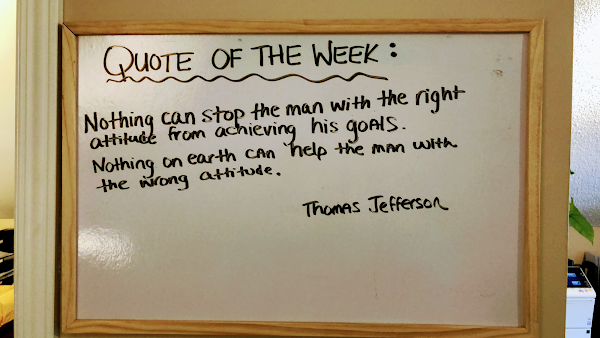 QUOTE OF THE WEEK:
Nothing can stop the man with the right
attitude from achieving his goals.
Nothing on earth can help the man with
the wrong attitude.
Thomas Jefferson